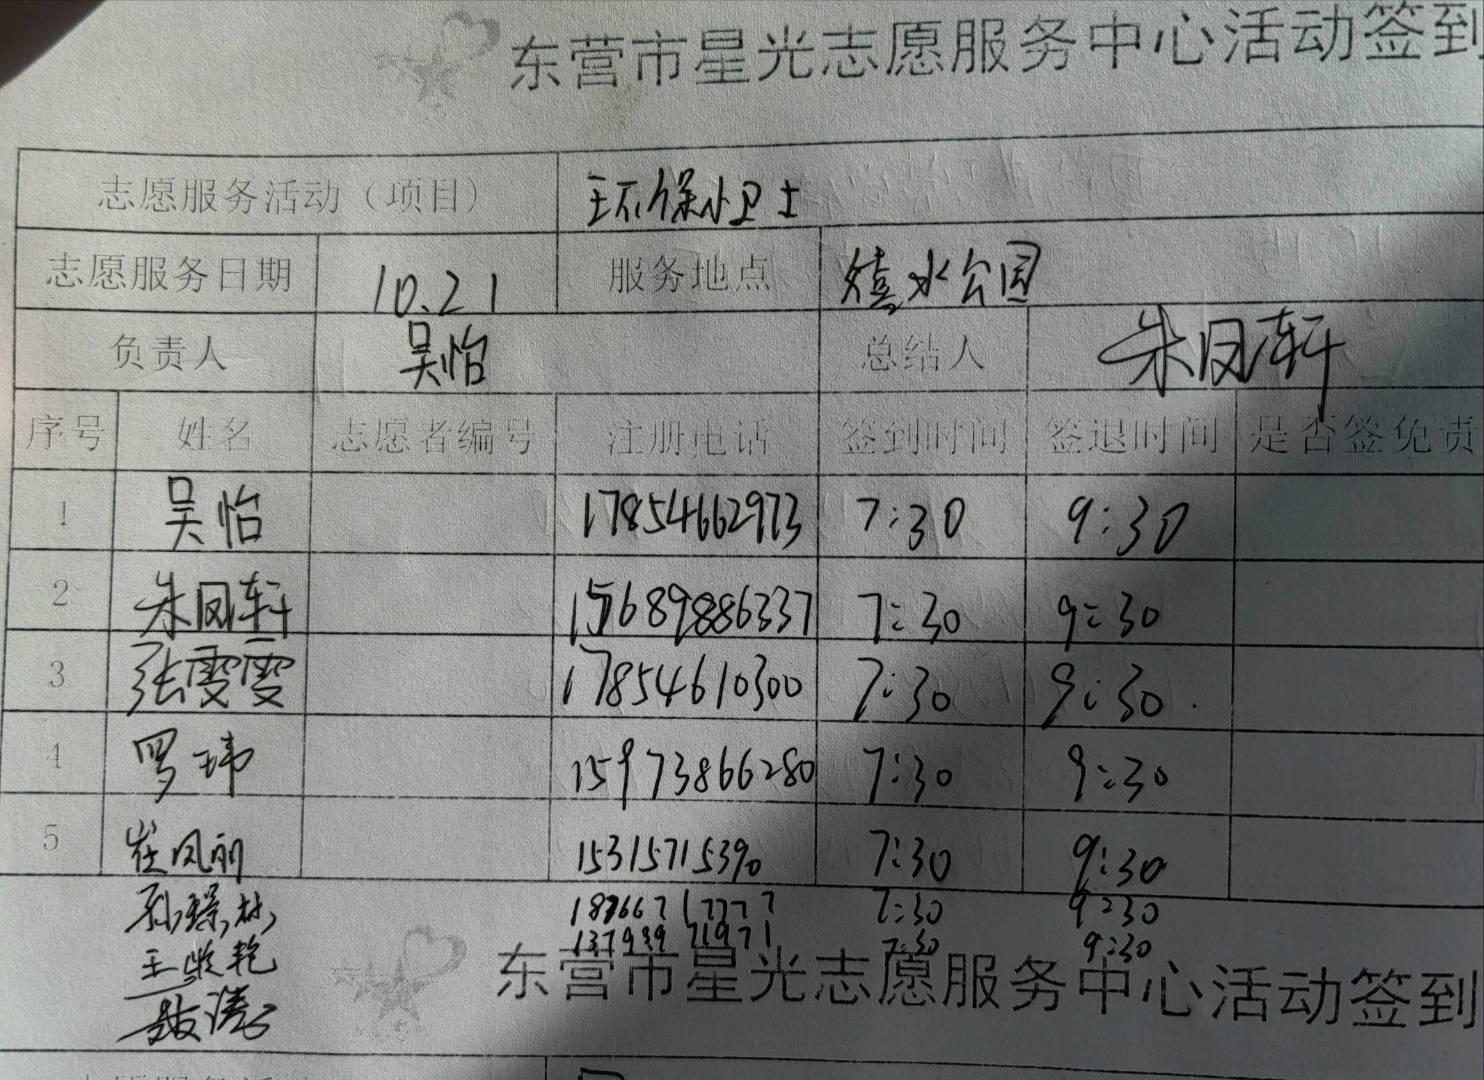 东营市星光志愿服务中心活动签到
志愿服务活动（项目） 环保小卫士
志愿服务日期 10.21 服务地点 水公园
负责人 吴怡 总结人 朱凤轩
序号 姓名 志愿者编号 注册电话 签到时间 签退时间 是否签免责
1 吴怡 17854662973 7:30 9:30
2 朱凤轩 15689886337 7:30 9:30
3 张雯雯 17854610300 7:30 9:30
4 罗玮 15973866280 7:30 9:30
5 崔凤丽 15315715390 7:30 9:30
孙 林 18766717777 7:30 9:30
王 艳 13793971971 7:30 9:30
东营市星光志愿服务中心活动签到